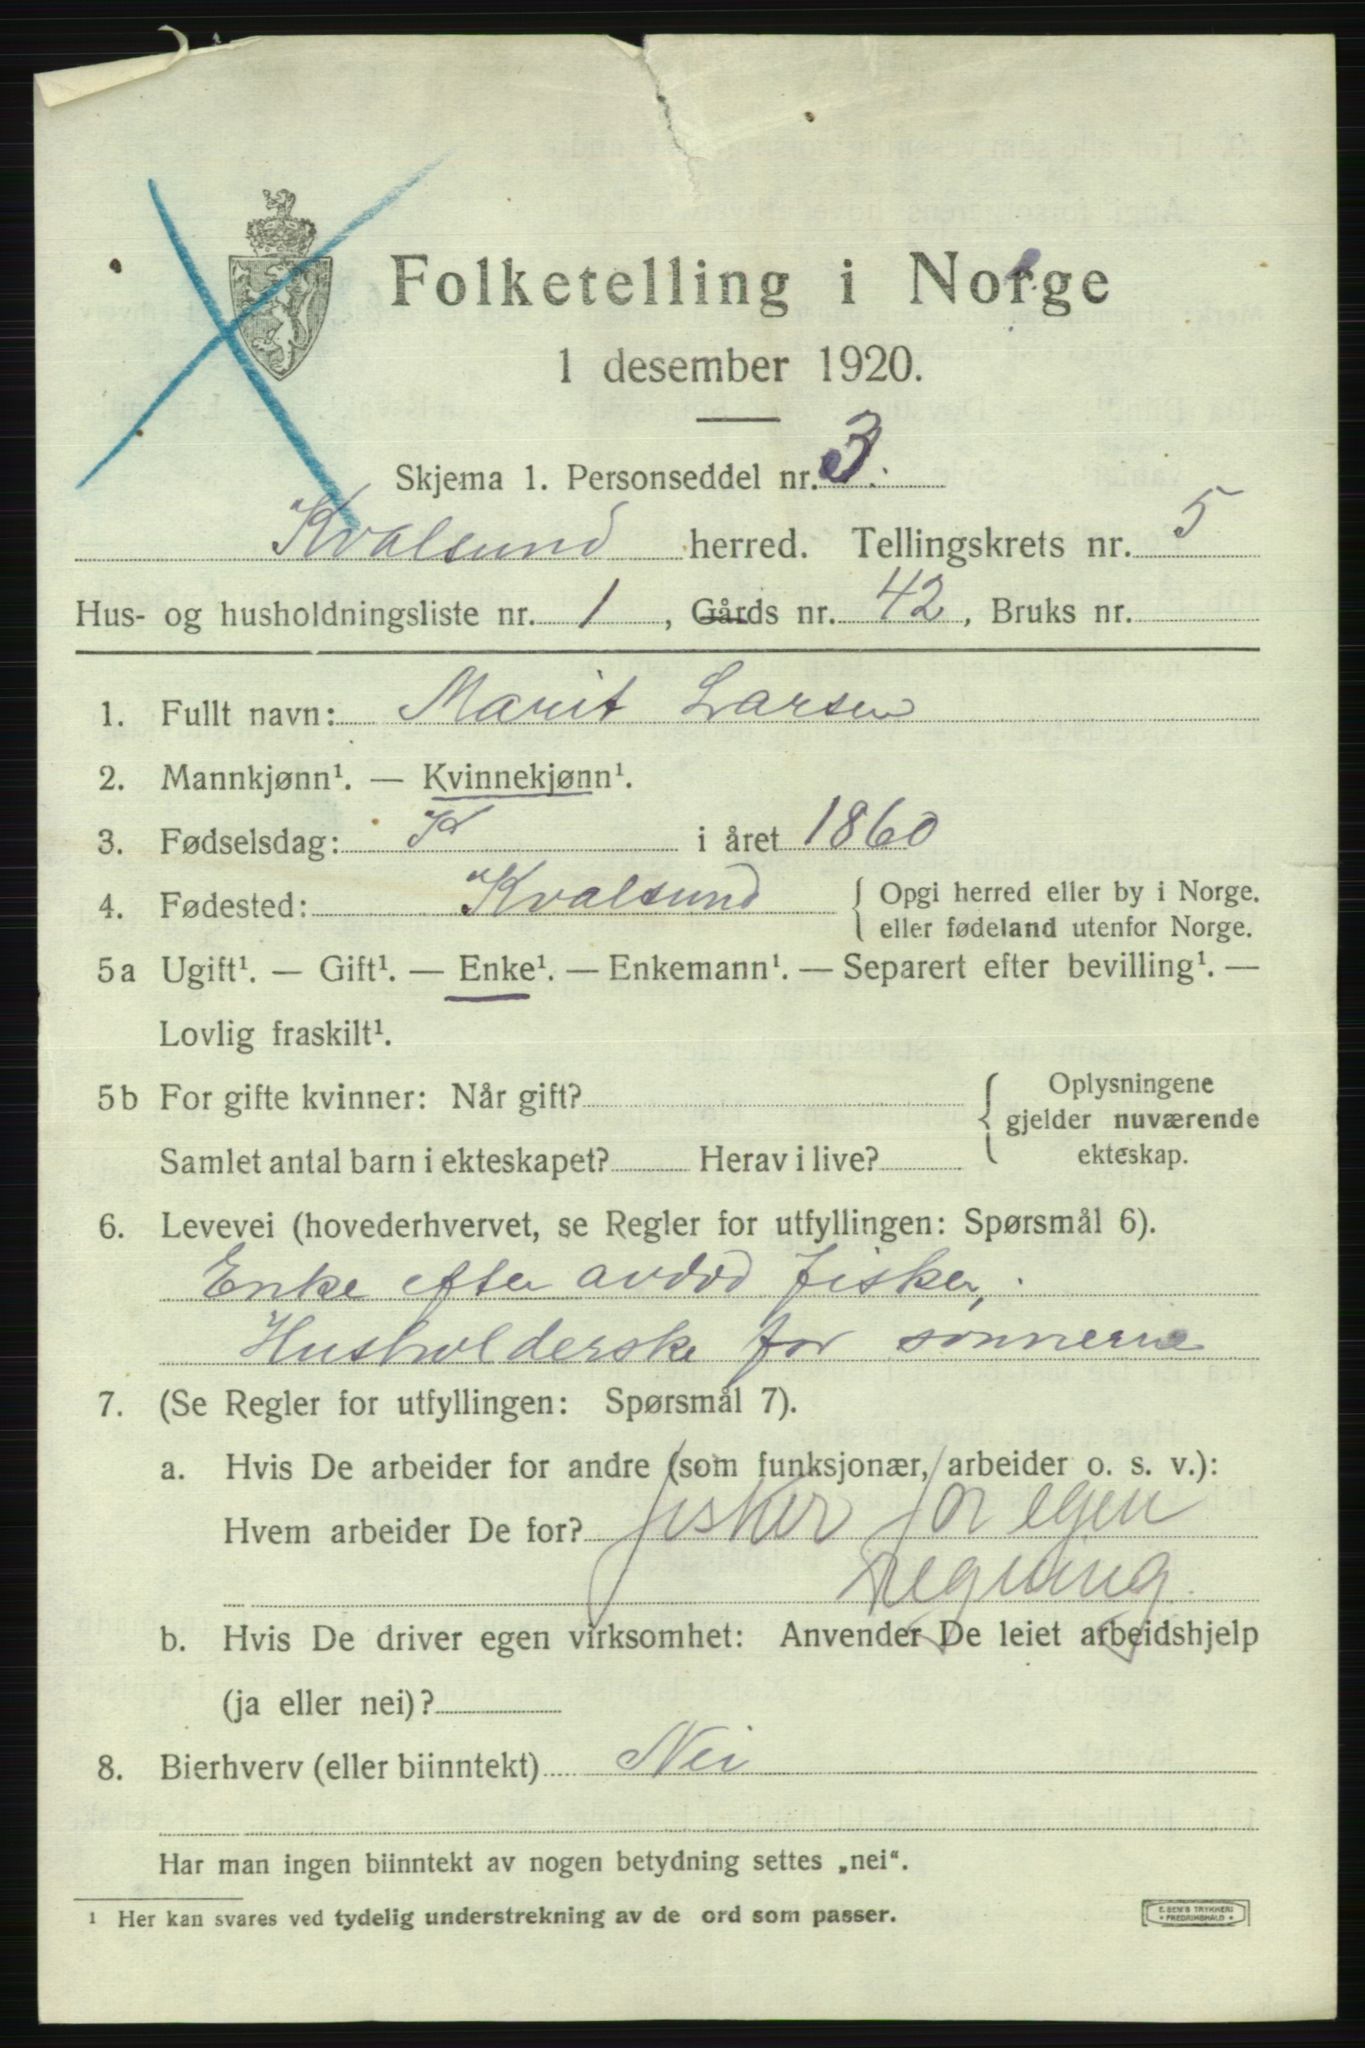 Folketelling i Norge
1 desember 1920.
Skjema 1. Personseddel nr. 3.
Kvalsund herred. Tellingskrets nr. 5
Hus- og husholdningsliste nr. 1, Gårds nr. 42, Bruks nr.
1. Fullt navn: Marit Larsen
2. Mannkjønn¹. — Kvinnekjønn¹.
3. Fødselsdag: K i året 1860
4. Fødested: Kvalsund { Opgi herred eller by i Norge.
eller fødeland utenfor Norge.
5a Ugift¹. — Gift¹. — Enke¹. — Enkemann¹. — Separert efter bevilling¹. —
Lovlig fraskilt¹.
5b For gifte kvinner: Når gift? { Oplysningene
gjelder nuværende
Samlet antal barn i ekteskapet? Herav i live? ekteskap.
6. Levevei (hovederhvervet, se Regler for utfyllingen: Spørsmål 6).
Enke efter avdød fisker,
Husholderske for sønnerne
7. (Se Regler for utfyllingen: Spørsmål 7).
a. Hvis De arbeider for andre (som funksjonær, arbeider o. s. v.):
Hvem arbeider De for? fisker for egen
regning.
b. Hvis De driver egen virksomhet: Anvender De leiet arbeidshjelp
(ja eller nei)?
8. Bierhverv (eller biinntekt) Nei
Har man ingen biinntekt av nogen betydning settes „nei“.
¹ Her kan svares ved tydelig understrekning av de ord som passer.
E. SEM'S TRYKKERI
• FREDRIKSHALD •